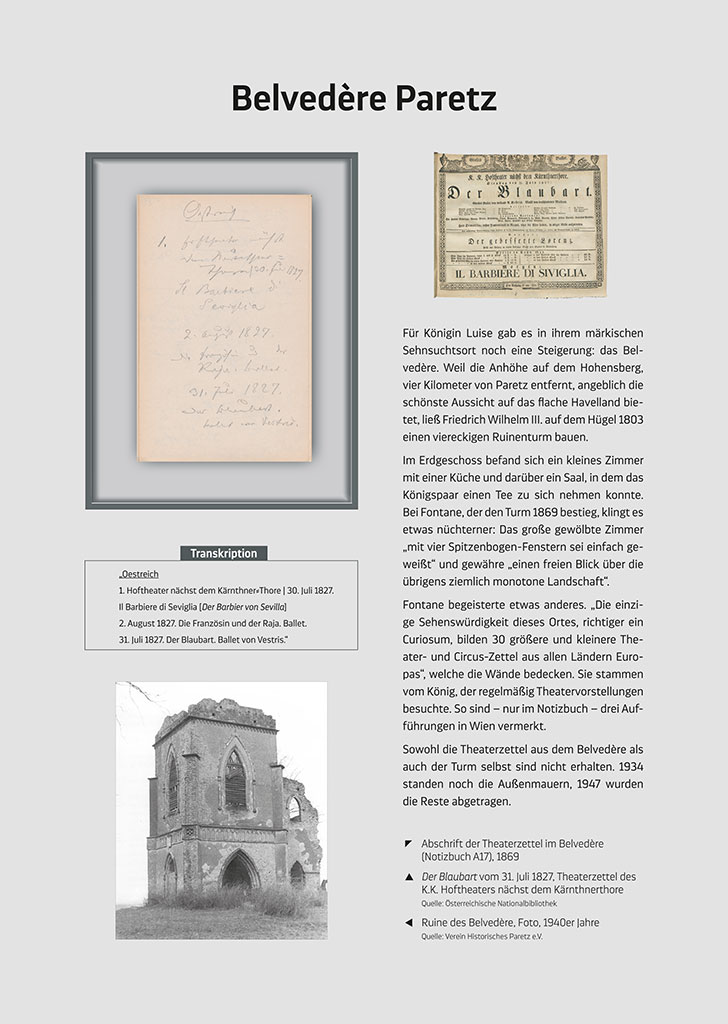 Belvedère Paretz
Oestreich
1. Hoftheater nächst
dem Kärnthner=
Thore | 30. Juli 1827.
Il Barbiere di
Seviglia
2. August 1827.
Die Französin und der
Raja. Ballet.
31. Juli 1827.
Der Blaubart.
Ballet von Vestris.
Transkription
„Oestreich
1. Hoftheater nächst dem Kärnthner=Thore | 30. Juli 1827.
Il Barbiere di Seviglia [Der Barbier von Sevilla]
2. August 1827. Die Französin und der Raja. Ballet.
31. Juli 1827. Der Blaubart. Ballet von Vestris.“
K. K. Hoftheater nächst dem Kärnthnerthore.
Der Blaubart.
Der gebesserte Lorenz.
IL BARBIERE DI SIVIGLIA.
Für Königin Luise gab es in ihrem märkischen
Sehnsuchtsort noch eine Steigerung: das Bel-
vedère. Weil die Anhöhe auf dem Hohensberg,
vier Kilometer von Paretz entfernt, angeblich die
schönste Aussicht auf das flache Havelland bie-
tet, ließ Friedrich Wilhelm III. auf dem Hügel 1803
einen viereckigen Ruinenturm bauen.
Im Erdgeschoss befand sich ein kleines Zimmer
mit einer Küche und darüber ein Saal, in dem das
Königspaar einen Tee zu sich nehmen konnte.
Bei Fontane, der den Turm 1869 bestieg, klingt es
etwas nüchterner: Das große gewölbte Zimmer
„mit vier Spitzenbogen-Fenstern sei einfach ge-
weißt“ und gewähre „einen freien Blick über die
übrigens ziemlich monotone Landschaft“.
Fontane begeisterte etwas anderes. „Die einzi-
ge Sehenswürdigkeit dieses Ortes, richtiger ein
Curiosum, bilden 30 größere und kleinere The-
ater- und Circus-Zettel aus allen Ländern Euro-
pas“, welche die Wände bedecken. Sie stammen
vom König, der regelmäßig Theatervorstellungen
besuchte. So sind – nur im Notizbuch – drei Auf-
führungen in Wien vermerkt.
Sowohl die Theaterzettel aus dem Belvedère als
auch der Turm selbst sind nicht erhalten. 1934
standen noch die Außenmauern, 1947 wurden
die Reste abgetragen.
Abschrift der Theaterzettel im Belvedère
(Notizbuch A17), 1869
Der Blaubart vom 31. Juli 1827, Theaterzettel des
K.K. Hoftheaters nächst dem Kärnthnerthore
Quelle: Österreichische Nationalbibliothek
Ruine des Belvedère, Foto, 1940er Jahre
Quelle: Verein Historisches Paretz e.V.